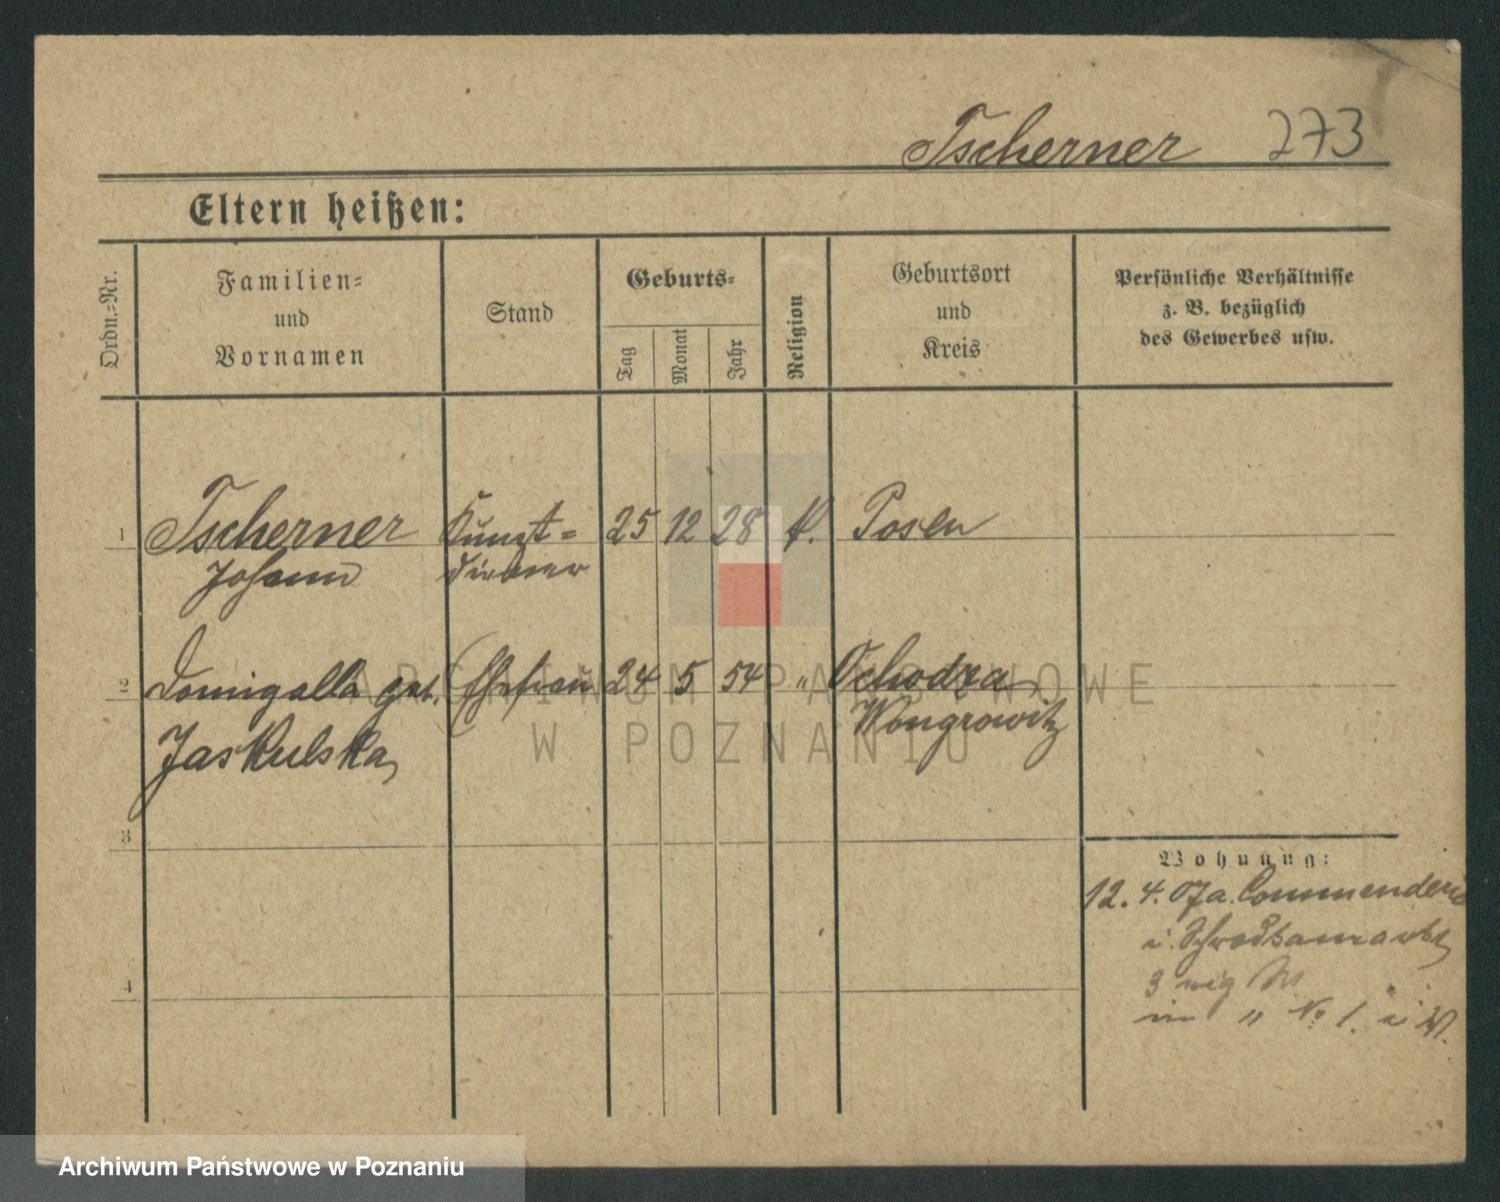 Tscherner 273
Eltern heißen:
Ordn.-Nr.
Familien-
und
Vornamen
Stand
Geburts-
Tag
Monat
Jahr
Religion
Geburtsort
und
Kreis
Persönliche Verhältnisse
z. B. bezüglich
des Gewerbes usw.
1 Tscherner Kunst- 25 12 28 k. Posen
Johann diener
2 Domigalla geb. Ehefrau 24 5 54 " Ochodza
Jaskulska Wongrowitz
3
4
Wohnung:
12. 4. 07 a. Commenderie
3
im " No 1. i W.
ARCHIWUM PAŃSTWOWE
W POZNANIU
Archiwum Państwowe w Poznaniu